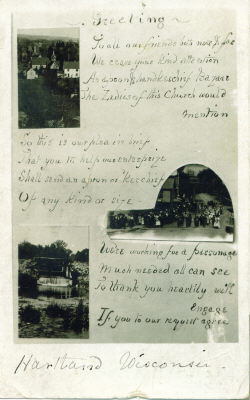 Greeting
To all our friends both near & far
We crave your kind attention
As apron, handkerchief bazaar
The Ladies of this Church would
mention
So this is our plea in brief
That you to help our enterprize
Shall send an apron or Kerchief
Of any kind or size
We're working for a parsonage
Much needed all can see
To thank you heartily we'll
engage
If you to our request agree
Hartland Wisconsin.